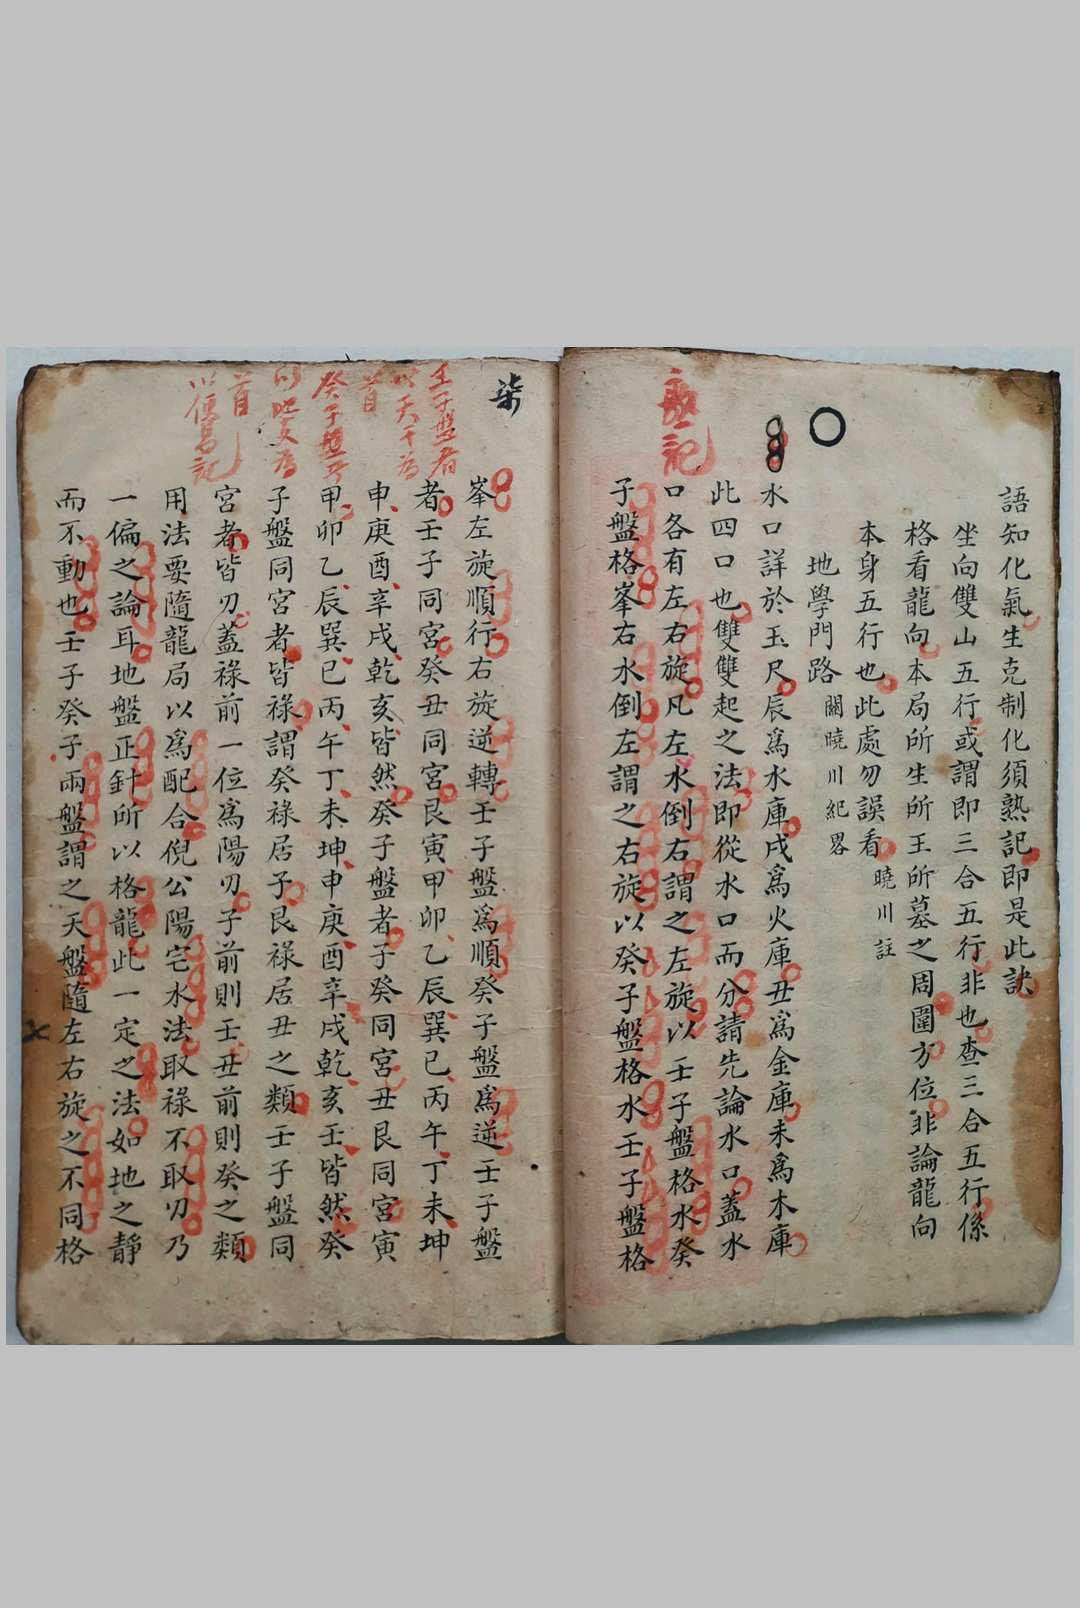 語知化氣生克制化須熟記即是此訣
坐向雙山五行或謂即三合五行非也查三合五行係
格看龍向本局所生所王所墓之周圍方位非論龍向
本身五行也此處勿誤看 曉川註
地學門路 關曉川紀畧
水口詳於玉尺辰爲水庫戌爲火庫丑爲金庫未爲木庫
此四口也雙雙起之法即從水口而分請先論水口蓋水
口各有左右旋凡左水倒右謂之左旋以壬子盤格水癸
子盤格峯右水倒左謂之右旋以癸子盤格水壬子盤格
熟記
柒
峯左旋順行右旋逆轉壬子盤爲順癸子盤爲逆壬子盤
者壬子同宮癸丑同宮艮寅甲卯乙辰巽巳丙午丁未坤
申庚酉辛戌乾亥皆然癸子盤者子癸同宮丑艮同宮寅
甲卯乙辰巽巳丙午丁未坤申庚酉辛戌乾亥壬皆然癸
子盤同宮者皆祿謂癸祿居子艮祿居丑之類壬子盤同
宮者皆刃蓋祿前一位爲陽刃子前則壬丑前則癸之類
用法要隨龍局以爲配合倪公陽宅水法取祿不取刃乃
一偏之論耳地盤正針所以格龍此一定之法如地之靜
而不動也壬子癸子兩盤謂之天盤隨左右旋之不同格
壬子盤者
以天干為
首
癸子盤者
以地支為
首
以便易記